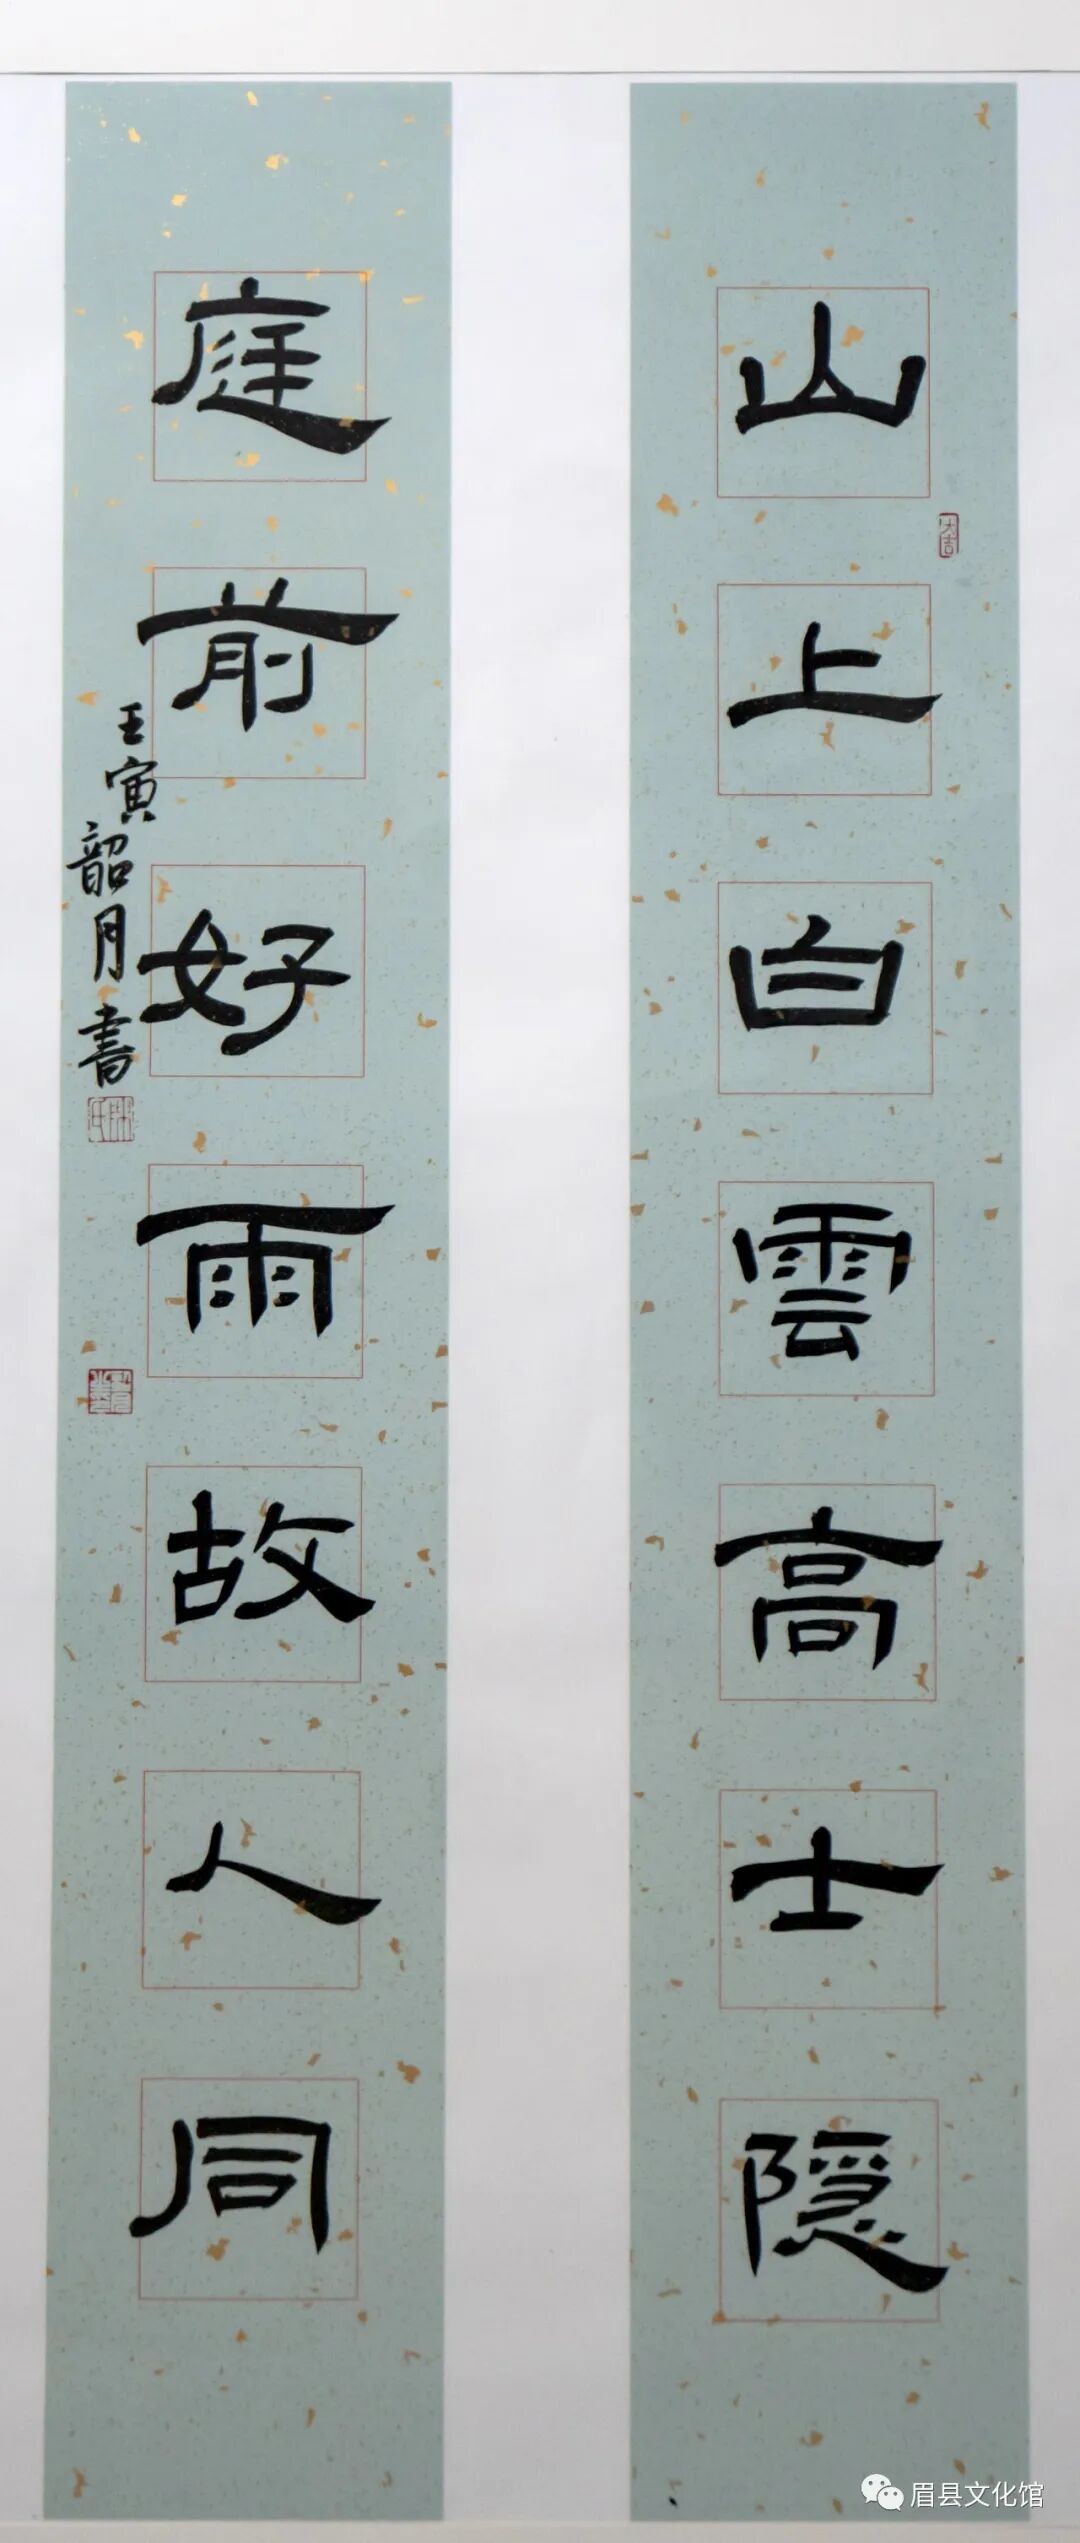 山上白雲高士隱
庭前好雨故人同
壬寅韶月書
大吉
眉县文化馆